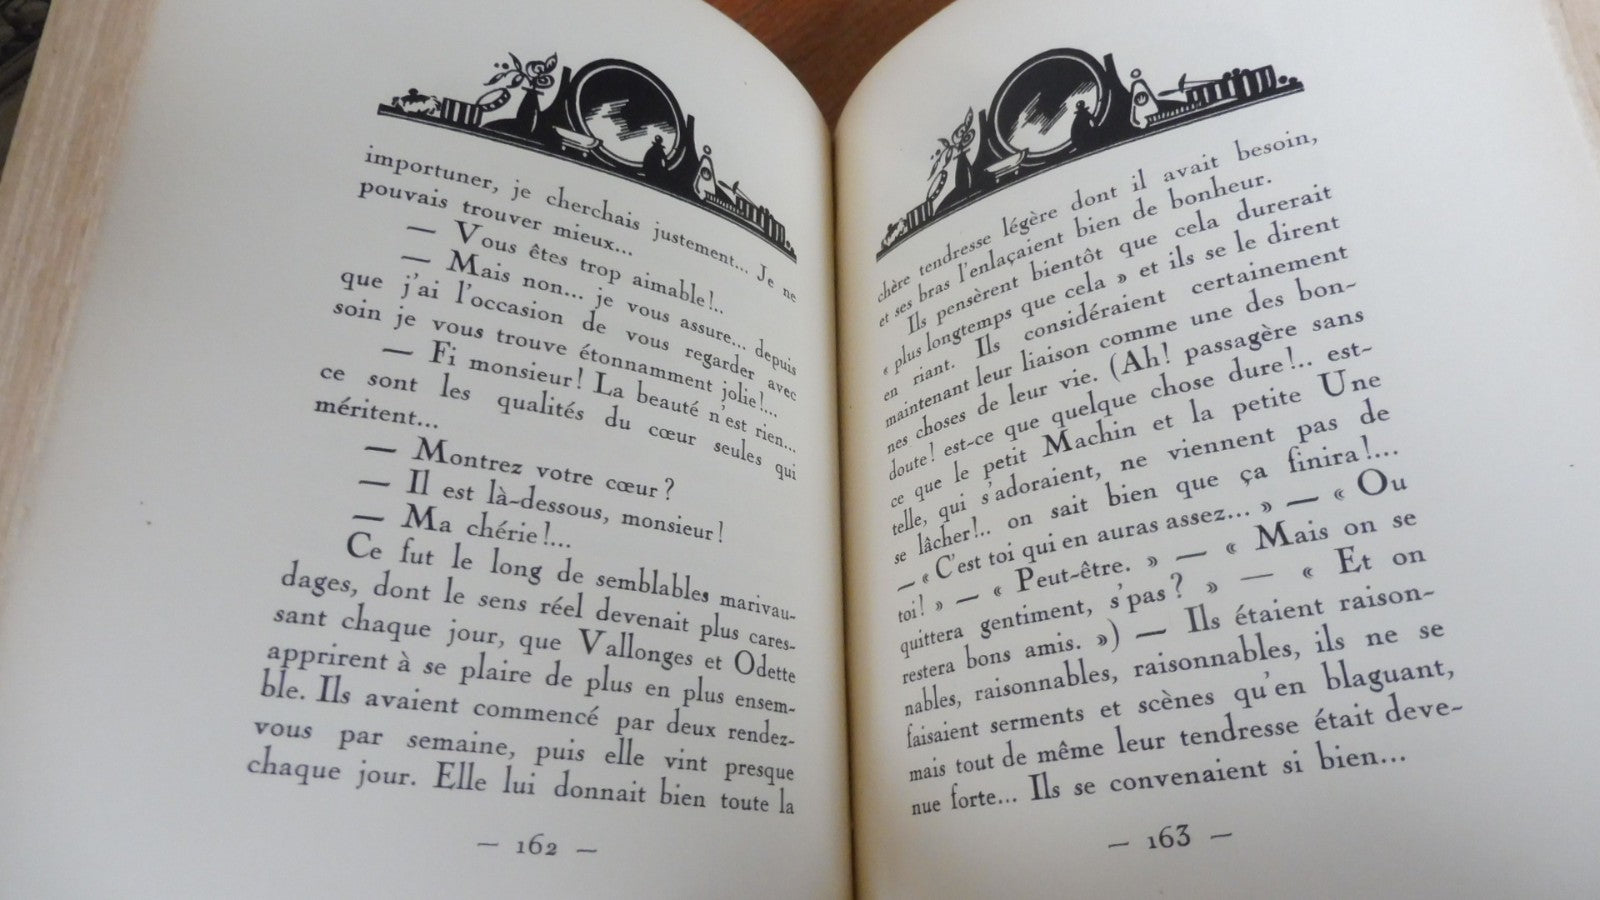 importuner, je cherchais justement... Je ne
pouvais trouver mieux...
— Vous êtes trop aimable!..
— Mais non... je vous assure... depuis
que j'ai l'occasion de vous regarder avec
soin je vous trouve étonnamment jolie!...
— Fi monsieur! La beauté n'est rien...
ce sont les qualités du cœur seules qui
méritent...
— Montrez votre cœur?
— Il est là-dessous, monsieur!
— Ma chérie!...
Ce fut le long de semblables marivau-
dages, dont le sens réel devenait plus cares-
sant chaque jour, que Vallonges et Odette
apprirent à se plaire de plus en plus ensem-
ble. Ils avaient commencé par deux rendez-
vous par semaine, puis elle vint presque
chaque jour. Elle lui donnait bien toute la
— 162 —
chère tendresse légère dont il avait besoin,
et ses bras l'enlaçaient bien de bonheur.
Ils pensèrent bientôt que cela durerait
« plus longtemps que cela » et ils se le dirent
en riant. Ils considéraient certainement
maintenant leur liaison comme une des bon-
nes choses de leur vie. (Ah! passagère sans
doute! est-ce que quelque chose dure!.. est-
ce que le petit Machin et la petite Une
telle, qui s'adoraient, ne viennent pas de
se lâcher!.. on sait bien que ça finira!...
— « C'est toi qui en auras assez... » — « Ou
toi! » — « Peut-être. » — « Mais on se
quittera gentiment, s'pas? » — « Et on
restera bons amis. ») — Ils étaient raison-
nables, raisonnables, raisonnables, ils ne se
faisaient serments et scènes qu'en blaguant,
mais tout de même leur tendresse était deve-
nue forte... Ils se convenaient si bien...
— 163 —